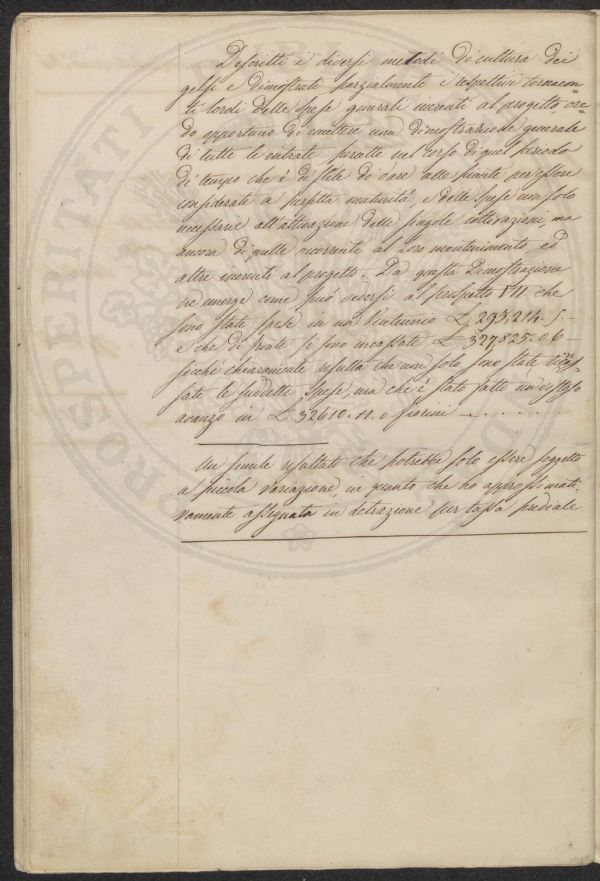 Descritti i diversi metodi di cultura dei
gelsi e dimostrati parzialmente i respettivi tornacon=
ti lordi delle spese generali inerenti al progetto, cre=
do opportuno di emettere una dimostrazione generale
di tutte le entrate percette nel corso di quel periodo
di tempo che è di stile di dare alle piante per essere
considerate a perfetta maturità, e delle spese non solo
necessarie all'attivazione delle singole coltivazioni, ma
ancora di quelle occorrenti al loro mantenimento ed
altre inerenti al progetto. Da questa Dimostrazione
ne emerge come può vedersi al prospetto VII che
sono state spese in un Ventennio L. 295,214. 5.-
e che di fronte si sono incassate L 327,825. 06
sicchè chiaramente resulta che non solo sono state
sate le suddette spese, ma che è stato fatto un
avanzo in L 32610. 11. o fiorini . . . . . .
Un simile resultato che potrebbe solo essere soggetto
a piccola variazione, in quanto che ho approssimati=
vamente assegnata in detrazione per tassa prediale
PROSPERITATI